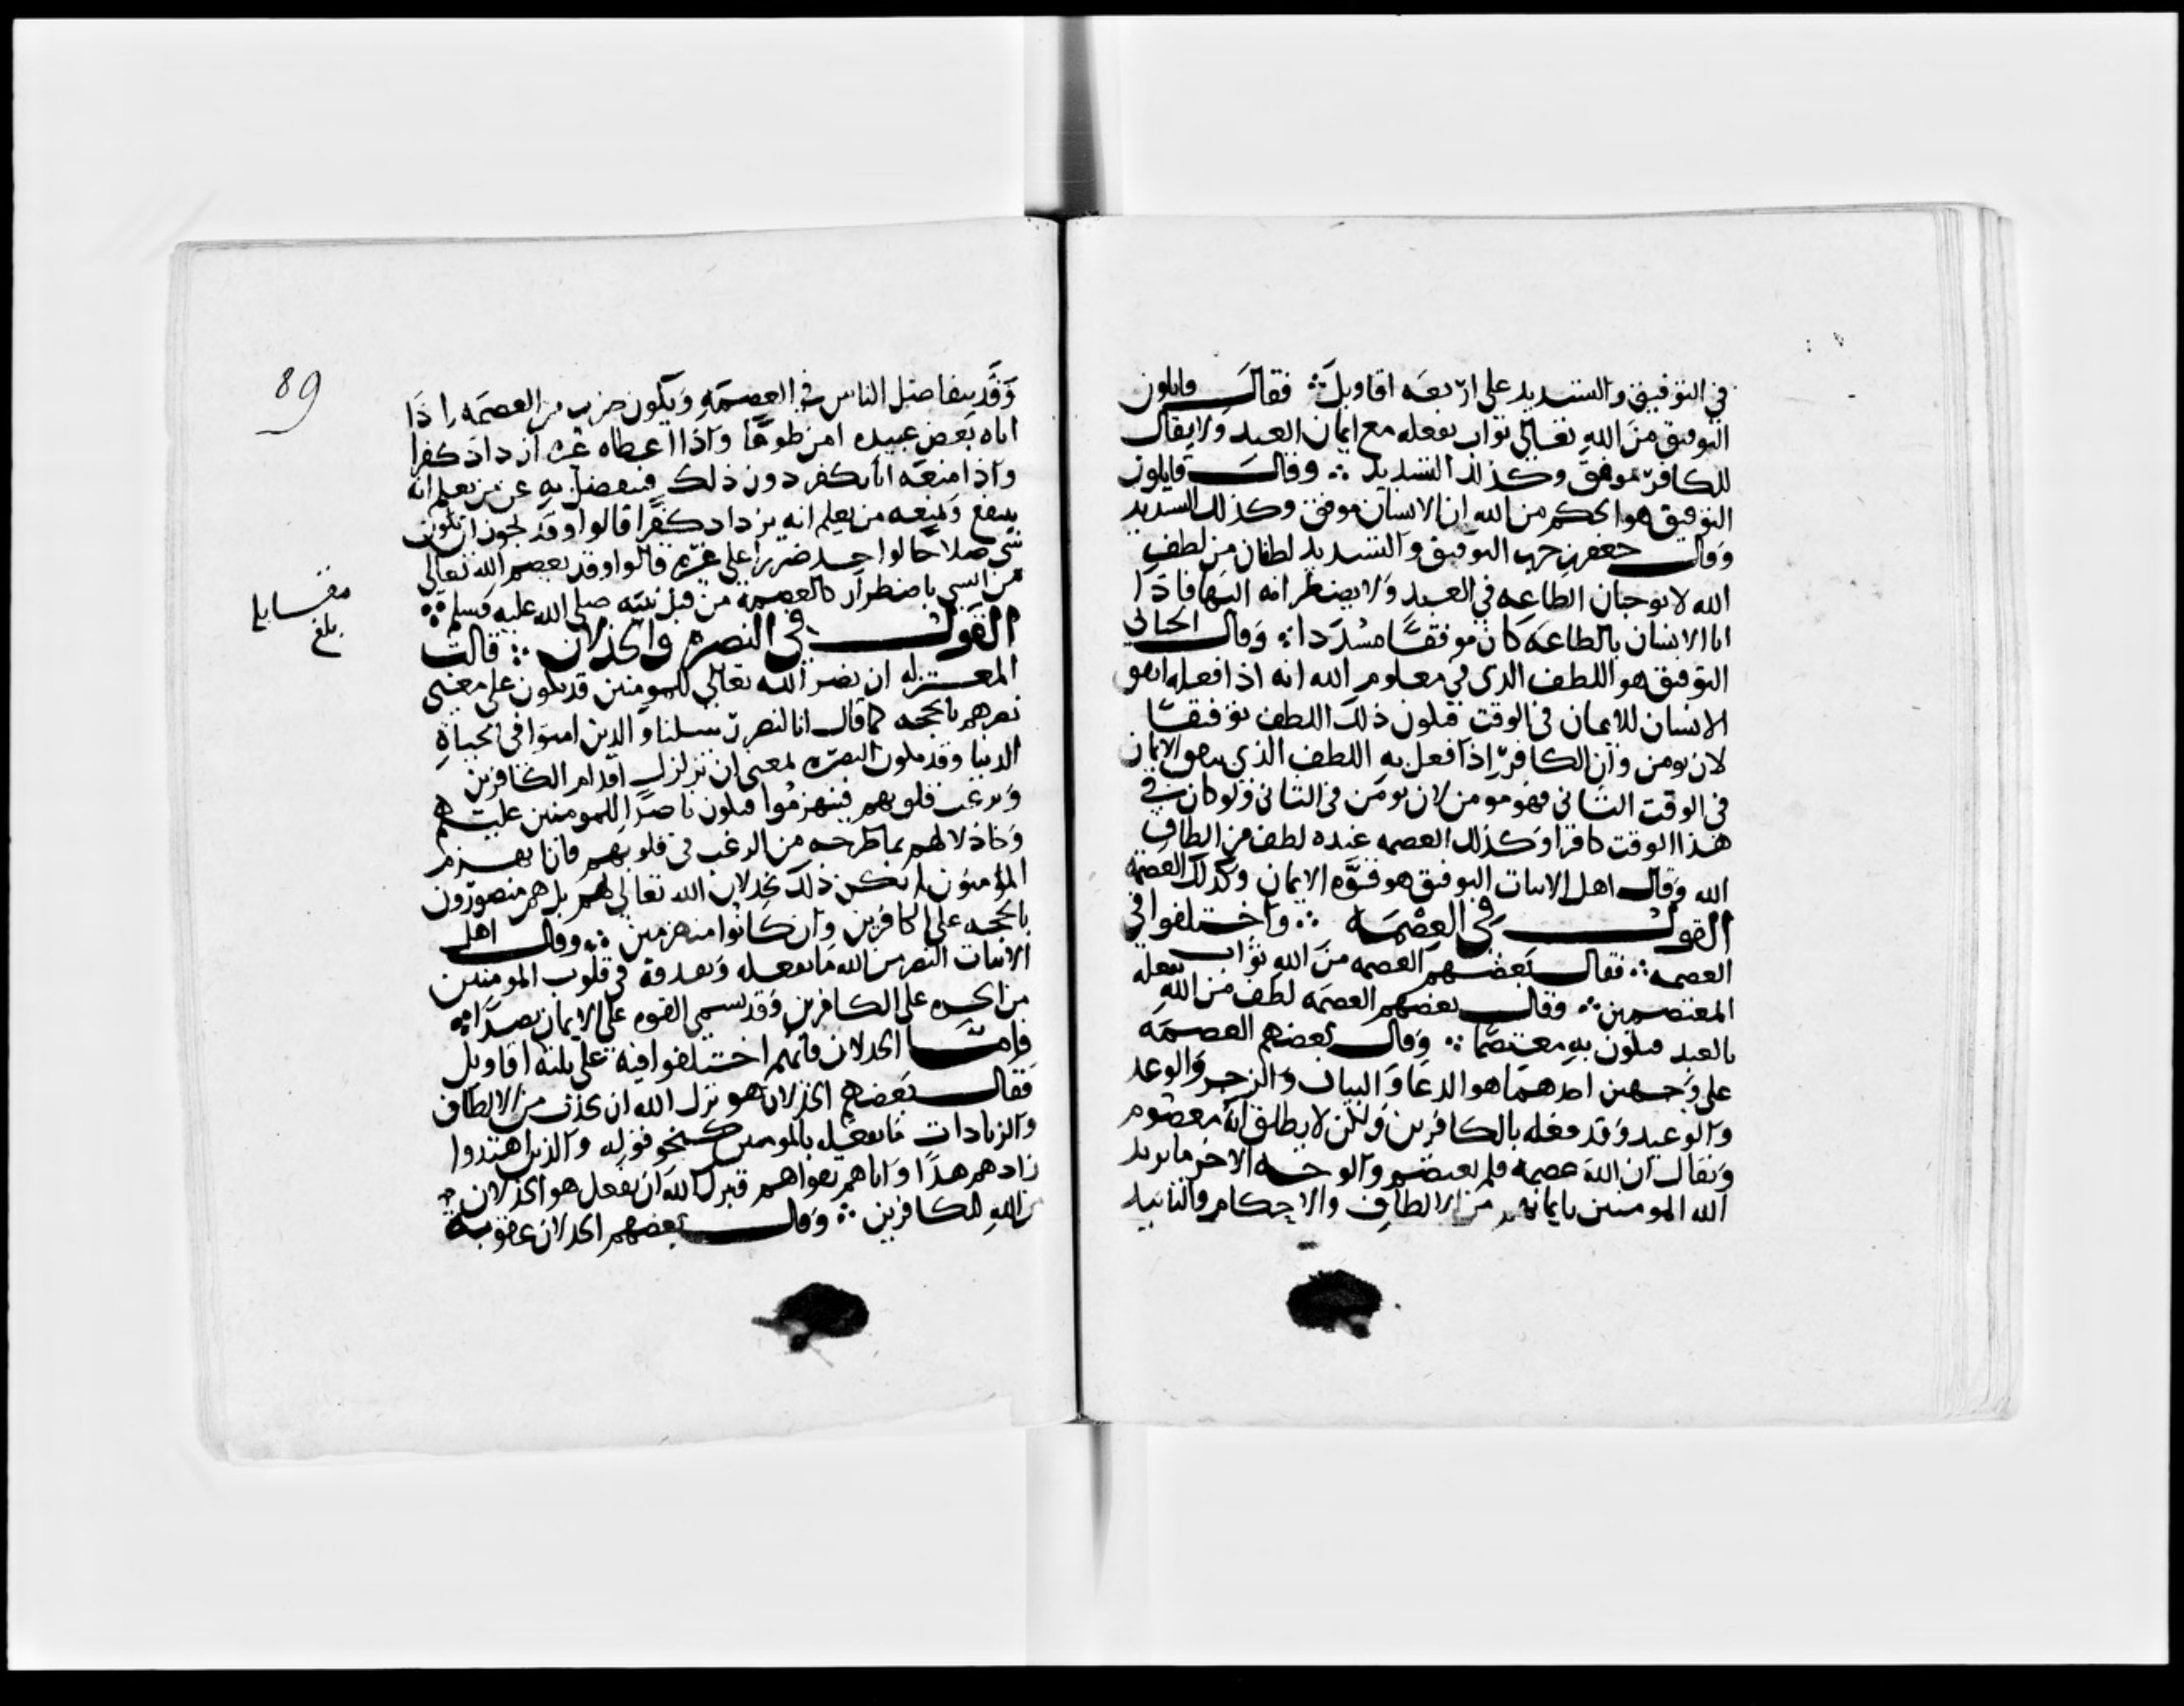 في التوفيق والتسديد على اربعه اقاويل ∴ فقال قايلون
التوفيق من الله تعالى ثواب يفعله مع ايمان العبد ولا يقال
للكافر موفق وكذلك التسديد ∴ وقال قايلون
التوفيق هو الحكم من الله ان الانسان موفق وكذلك التسديد
وقال جعفر بن حرب التوفيق والتسديد لطفان من لطف
الله لا يوجبان الطاعه في العبد ولا يضطرانه اليها فاذا
اتا الانسان بالطاعه كان موفقا مسددا ∴ وقال الجبائي
التوفيق هو اللطف الذي في معلوم الله انه اذا فعله اتفق
الانسان للايمان في الوقت فيكون ذلك اللطف توفيقا
لان يومن وان الكافر اذا فعل به اللطف الذي يتفق الايمان
في الوقت الثاني فهو مومن لان يومن في الثاني ولو كان في
هذا الوقت كافرا وكذلك العصمه عنده لطف من الطاف
الله وقال اهل الاثبات التوفيق هو قوه الايمان وكذلك العصمه
القول في العصمه ∴ واختلفوا في
العصمه ∴ فقال بعضهم العصمه من الله ثواب يفعله
المعتصمين ∴ وقال بعضهم العصمه لطف من الله
بالعبد فيكون به معتصما ∴ وقال بعضهم العصمه
على وجهين احدهما هو الدعا والبيان والزجر والوعد
والوعيد وقد فعله بالكافرين ولكن لا يطلق انه معصوم
ويقال ان الله عصمه فلم يعتصم والوجه الاخر ما يزيد
الله المومنين بايمانهم من الالطاف والاحكام والتاييد
89
وقد يتفاضل الناس في العصمه ويكون ضرب من العصمه اذا
اتاه بعض عبيده امن طوعا واذا اعطاه غيره ازداد كفرا
واذا منعه اتا بكفر دون ذلك فيتفضل به على من يعلم انه
ينتفع ويمنعه من يعلم انه يزداد كفرا قالوا وقد يجوز ان يكون
شي صلاحا لواحد ضررا على غيره قالوا وقد يعصم الله تعالى
من الشي باضطرار كالعصمة من قتل نبيه صلى الله عليه وسلم ∴
القول في النصره والخذلان ∴ قالت
المعتزله ان نصر الله تعالى للمومنين قد يكون على معنى
نصرهم بالحجه كما قال انا لننصر رسلنا والذين امنوا في الحياة
الدنيا وقد يكون النصره بمعنى ان تزلزل اقدام الكافرين
ويرعب قلوبهم فينهزموا فيكون ناصرا للمومنين عليهم
وخاذلا لهم بما طرحه من الرعب في قلوبهم فان انهزم
المؤمنون لم يكن ذلك بخذلان الله تعالى لهم بل هم منصورون
بالحجه على الكافرين وان كانوا منهزمين ∴ وقال اهل
الاثبات النصر من الله ما يفعله ويقذفه في قلوب المومنين
من الجره على الكافرين وقد يسمى القوه على الايمان نصرا ∴
فامّا الخذلان فانهم اختلفوا فيه على ثلثه اقاويل
فقال بعضهم الخذلان هو ترك الله ان يحدث من الالطاف
والزيادات ما يفعله بالمومنين كنحو قوله والذين اهتدوا
زادهم هدًا واتاهم تقواهم فترك الله ان يفعل هو الخذلان
من الله للكافرين ∴ وقال بعضهم الخذلان عقوبة
بلغ
مقابله